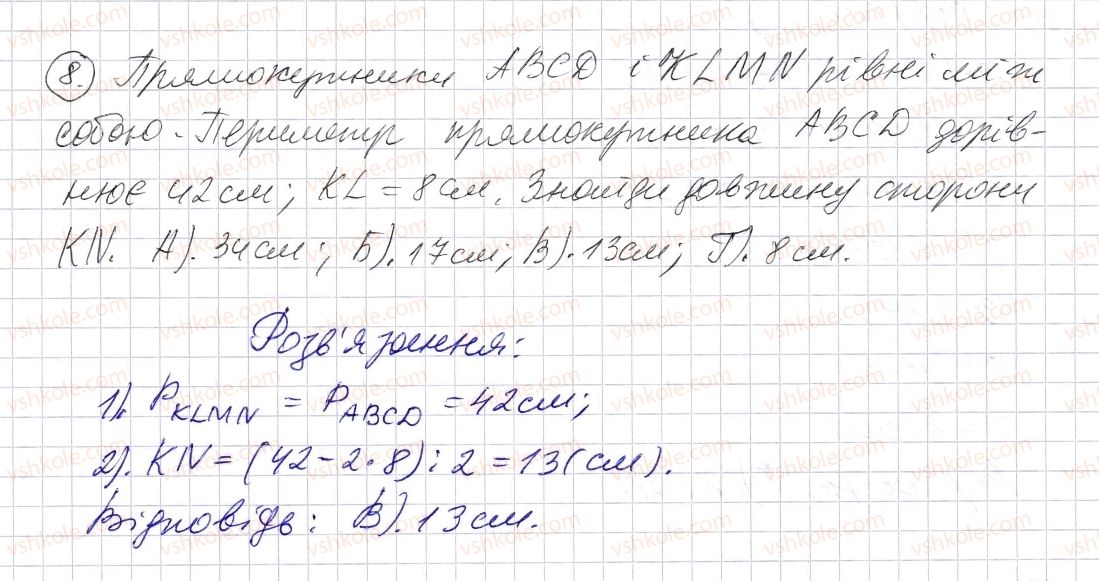 8. Прямокутники ABCD і KLMN рівні між
собою. Периметр прямокутника ABCD дорів-
нює 42 см; KL = 8 см. Знайди довжину сторони
KN. А). 34 см; Б). 17 см; В). 13 см; Г). 8 см.
Розв'язання:
1). P KLMN = P ABCD = 42 см;
2). KN = (42 - 2 · 8) : 2 = 13 (см).
Відповідь: В). 13 см.
vshkole.com